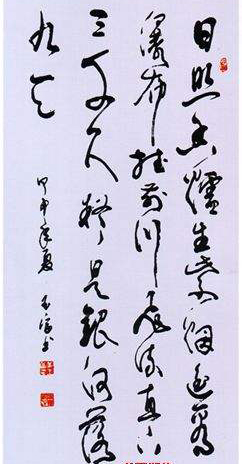 日照香炉生紫烟遥看
瀑布挂前川飞流直下
三千尺疑是银河落
九天
甲申年夏